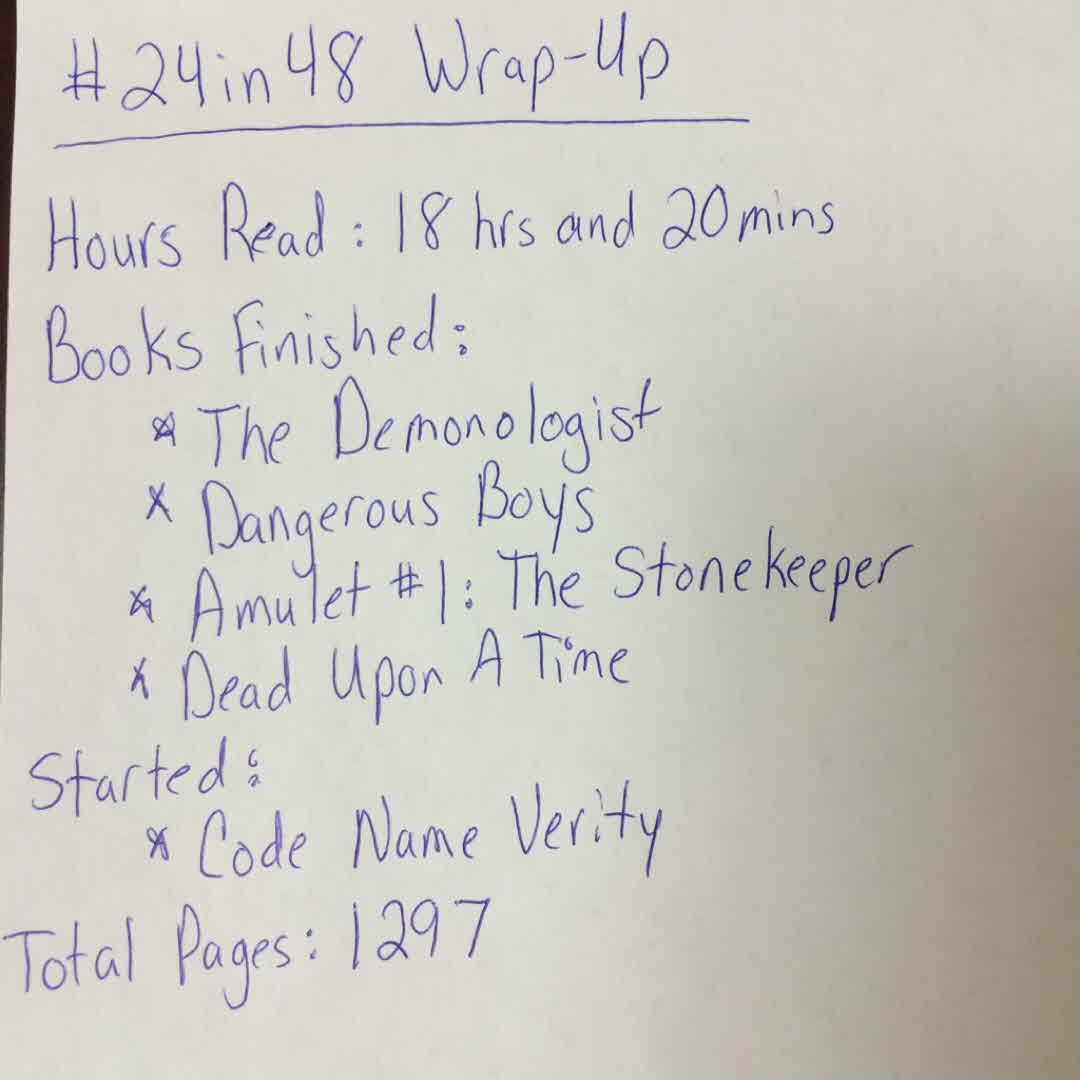 #24in48 Wrap-Up
Hours Read: 18 hrs and 20mins
Books Finished:
* The Demonologist
* Dangerous Boys
* Amulet #1: The Stonekeeper
* Dead Upon A Time
Started:
* Code Name Verity
Total Pages: 1297